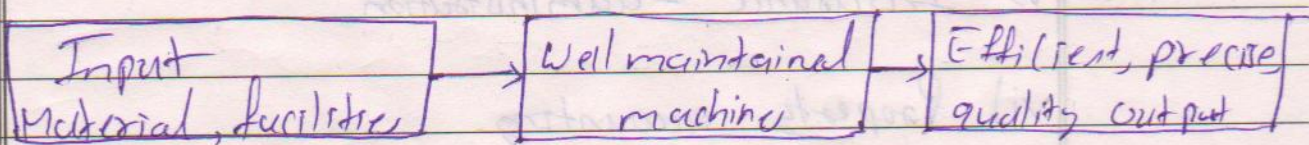 Input
Material, facilities
Well maintained
machine
Efficient, precise
quality output